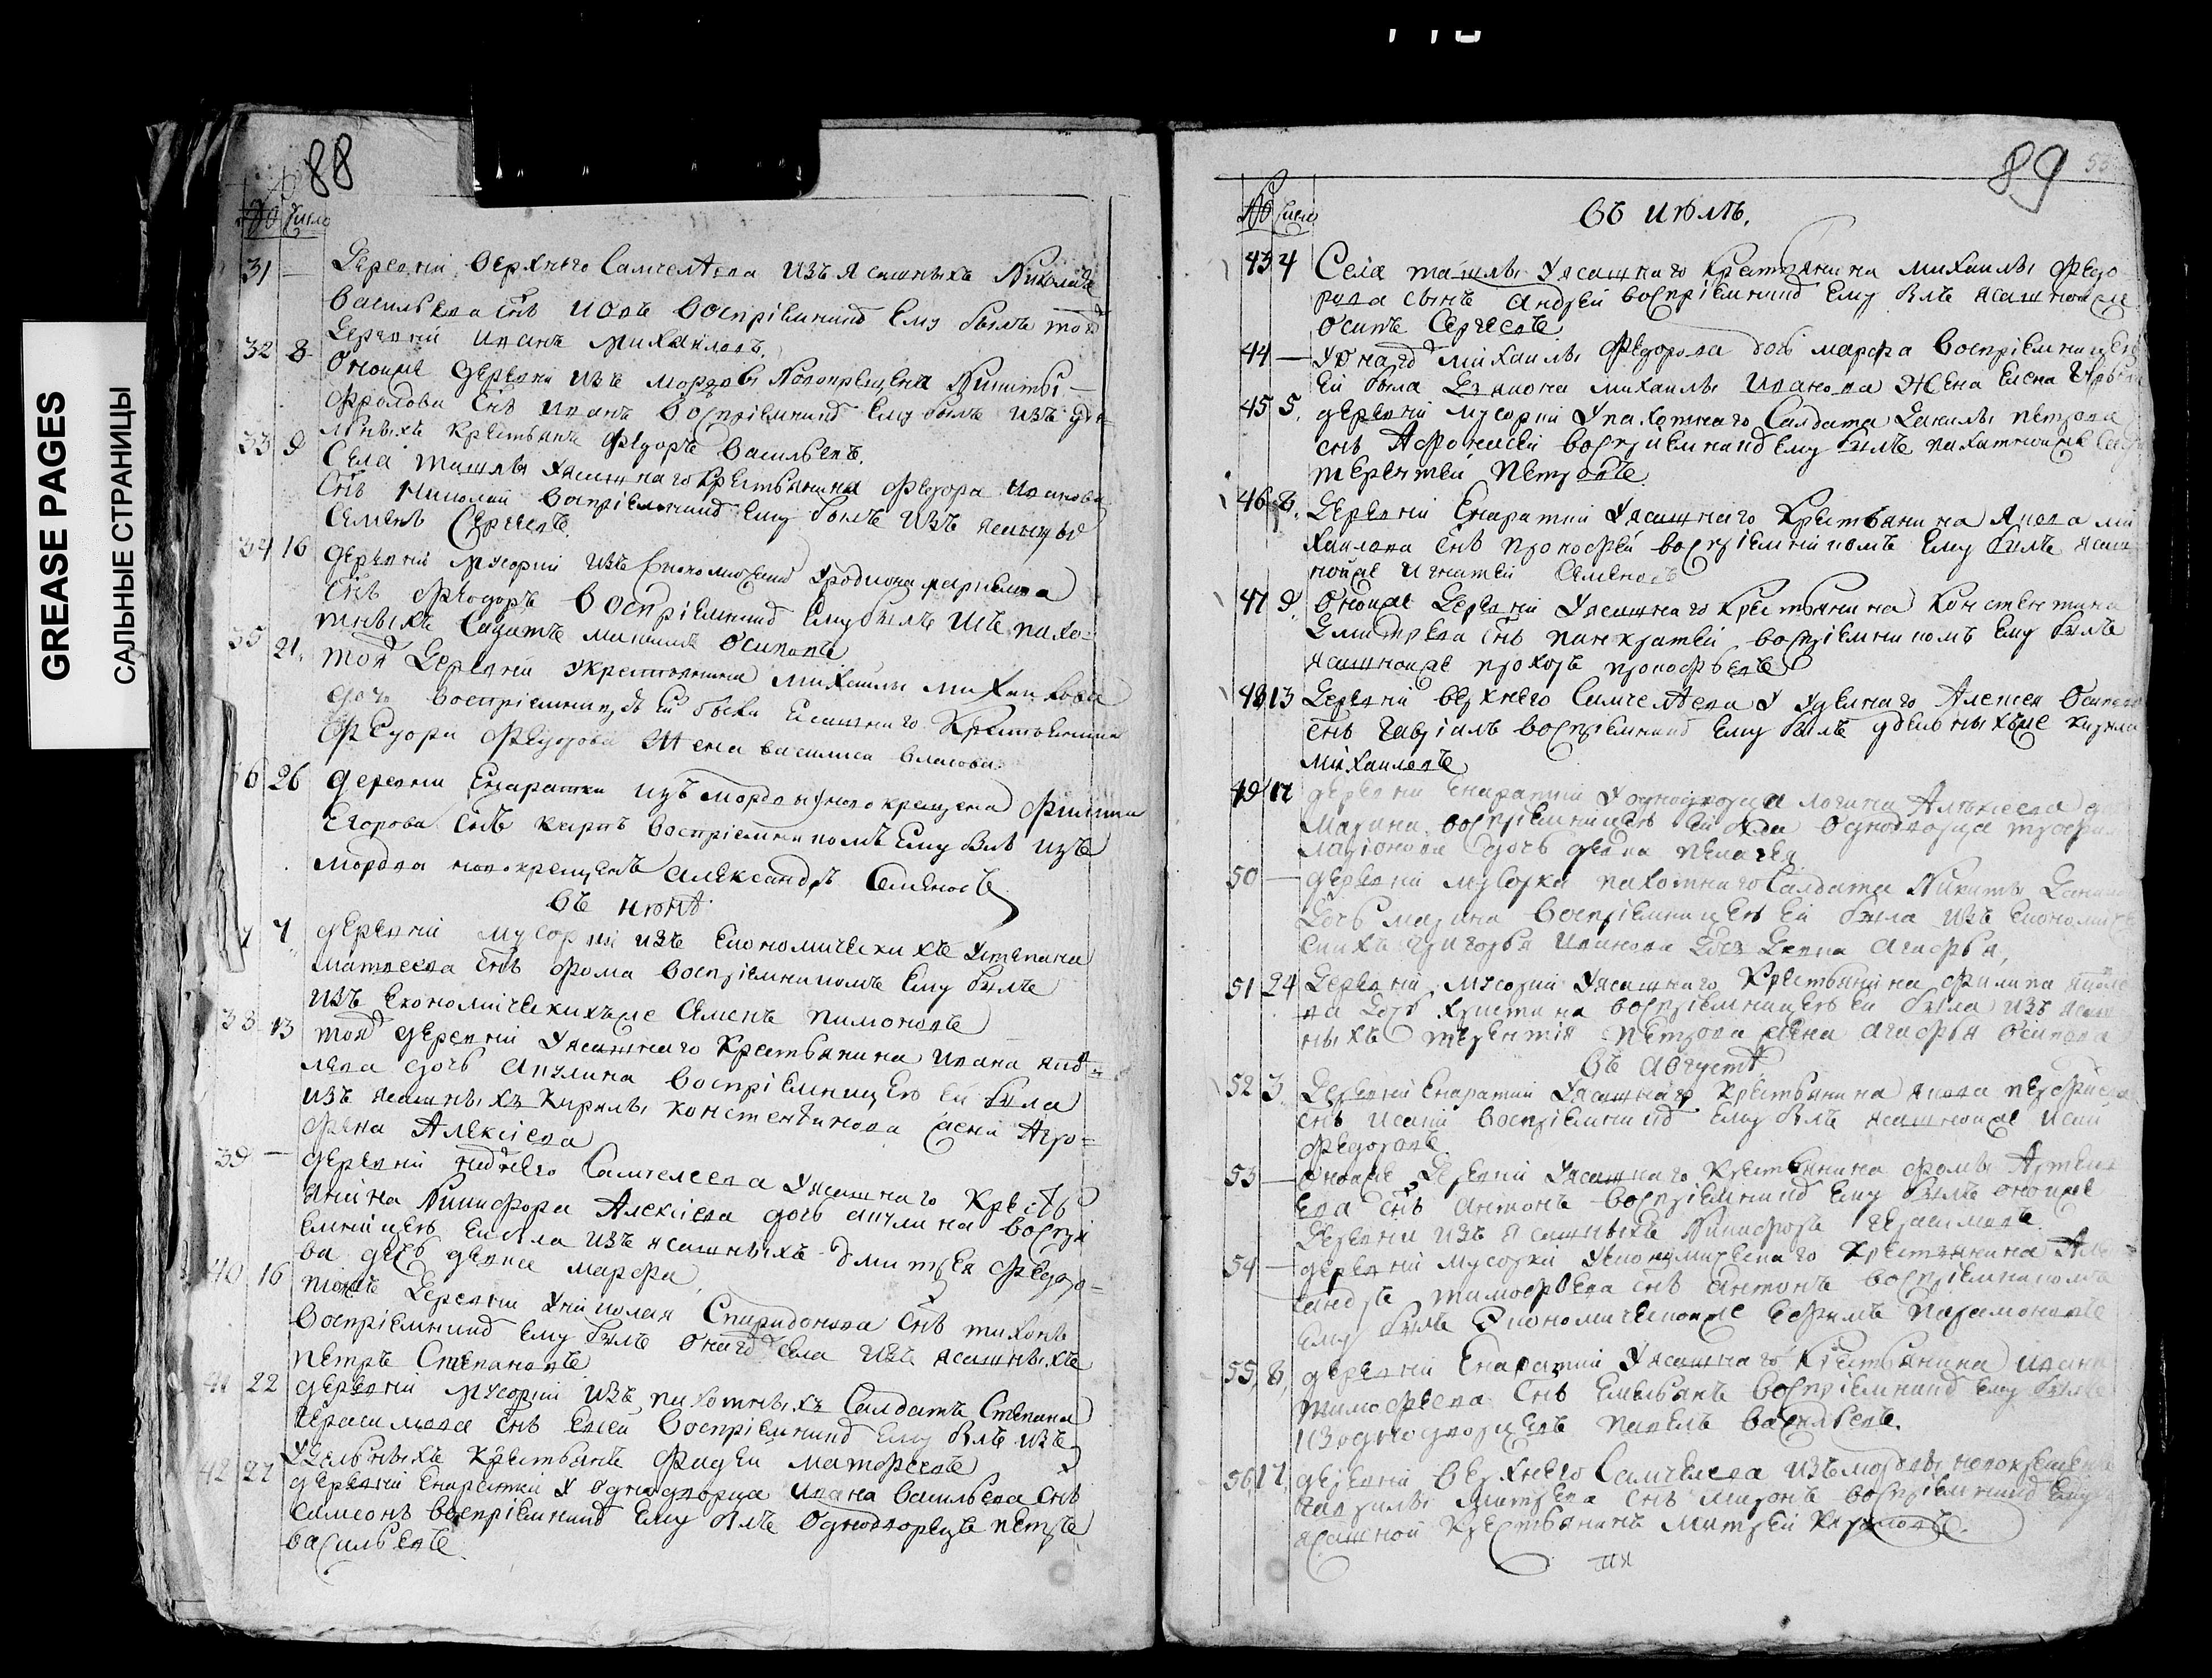 GREASE PAGES
САЛЬНЫЕ СТРАНИЦЫ
88
№ Число
31 — Деревни Верхнего Самчелѣева изъ ясашныхъ Николая
Васильева снъ Иовъ воспрiемникъ ему былъ той
деревни Иванъ Михайловъ.
32 8 Оной же деревни изъ мордвы новокрещена Никиты
Фролова снъ Иванъ воспрiемникъ ему былъ изъ удѣ-
льныхъ крестьянъ Федоръ Васильевъ.
33 9 Села Ташлы у ясашнаго крестьянина Федора Иванова
снъ Николай воспрiемникъ ему былъ изъ ясашныхъ
Семенъ Сергеевъ.
34 16 Деревни Мусорки изъ Економическихъ у Родиона
снъ Феодоръ воспрiемникъ ему былъ изъ пахо-
тныхъ салдатъ Осиповъ
35 21. Той деревни у крестьянина Михаилы
дочь воспрiемницею ей была ясашнаго крестьянина
Федора Федорова жена Василиса Власова.
36 26 Деревни Екаратки изъ мордвы новокрещена Филипа
Егорова снъ Карпъ воспрiемникомъ ему былъ изъ
мордва новокрещенъ Александръ Семеновъ
въ июнѣ
7 4. Деревни Мусорки изъ Економическихъ у Степана
Матвеева снъ Фома воспрiемникомъ ему былъ
изъ Економическихъ же Семенъ Пимоновъ
38 13 Той деревни у ясашнаго крестьянина Ивана
лева дочь Акулина воспрiемницею ей была
изъ ясашныхъ Кирилы Констентинова жена Агро-
фена Алексiева
39 — Деревни нижнего Самчелеева у ясашнаго кресть
янина Никифора Алексiева дочь Акулина воспрi
емницею ей была изъ ясашныхъ Дмитрея Федоро-
ва дочь девка Марфа
40 16 Той же деревни у Николая Спиридонова снъ Тихонъ
воспрiемникъ ему былъ онаго села изъ ясашныхъ
Петръ Степановъ
41 22 Деревни Мусорки изъ пахотныхъ салдатъ Степана
Герасимова снъ Елсей воспрiемникъ ему былъ изъ
удельныхъ крестьянъ Фадей Матфеевъ
42 27 Деревни Екаратки у однодворца Ивана Васильева снъ
Симеонъ воспрiемникъ ему былъ однодворецъ Петръ
Васильевъ.
89
№ Число
въ июлѣ.
43 4 Села Ташлы у ясашнаго крестьянина Михаилы Федо
рова сынъ Андрей воспрiемникъ ему былъ ясашной же
Осипъ Сергеевъ
44 — У онаго Михаилы Федорова дочь Марфа воспрiемницею
ей была Михаилы Иванова жена Елена
45 5. Деревни Мусорки у пахотнаго салдата Данилы Петрова
снъ Афонасей воспрiемникъ ему былъ пахатной же
Терентей Петровъ
46 8. Деревни Екаратки у ясашнаго крестьянина Якова Ми
хаилова снъ Прокофей воспрiемникомъ ему былъ ясаш
ной же Игнатей Семеновъ
47 9. Оной же деревни у ясашнаго крестьянина Констентина
Дмитрева снъ Панкратей воспрiемникомъ ему былъ
ясашной же Прохоръ Прокофьевъ
48 13 Деревни верхнего Самчелѣева у уделнаго Алексея Осипова
снъ Гаврiилъ воспрiемникъ ему былъ удельныхъ же
Михаилевъ
49 17 Деревни Екаратки у однодворца Логина Алексеева
Марина воспрiемницею ей была однодворца
Ларiонова дочь девка Пелагея
50 — Деревни Мусорки пахотнаго салдата Никиты
дочь Марина воспрiемницею ей была изъ економиче
скихъ Григорья Иванова дочь девка Агафья,
51 24 Деревни Мусорки у ясашнаго крестьянина Филипа
ва дочь Христина воспрiемницею ей была изъ ясаш
ныхъ Терентiя Петрова жена Агафья Осипова
въ августѣ
52 3. Деревни Екаратки у ясашнаго крестьянина Якова
снъ Исаий воспрiемникъ ему былъ ясашной же Исай
Федоровъ
53 — Оной же деревни у ясашнаго крестьянина Фомы Артем
ева снъ Антонъ воспрiемникъ ему былъ оной же
деревни изъ ясашныхъ Никифоръ Герасимовъ
54 — Деревни Мусорки у економическаго крестьянина Але
ксандръ Тимофеева снъ Антонъ воспрiемникомъ
ему былъ економической же Ефимъ Парамоновъ
55 8, Деревни Екаратки у ясашнаго крестьянина Ивана
Тимофеева снъ Емельянъ воспрiемникъ ему былъ
из однодворцевъ Павелъ Васильевъ.
56 17, Деревни верхнего Самчелеева изъ мордвы новокрещена
Гаврилы Митрева снъ Миронъ воспрiемникъ ему
ясашной крестьянинъ Митрей